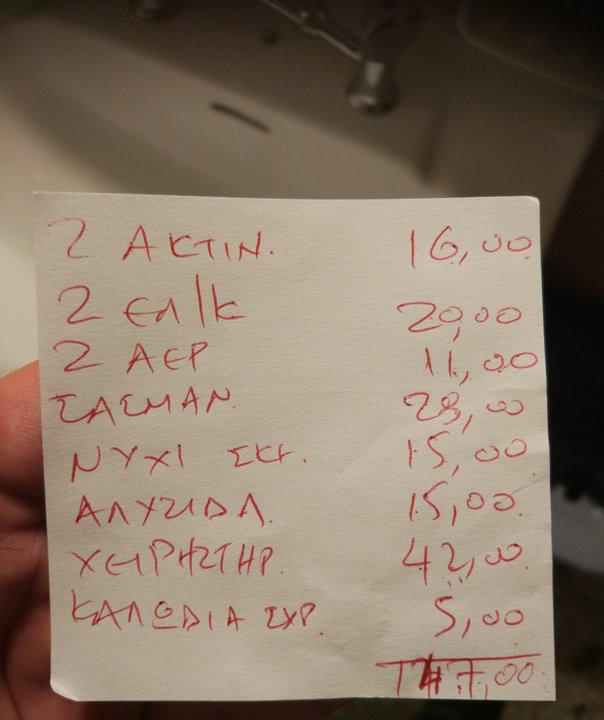 2 ΑΚΤΙΝ. 16,00
2 ΕΛ/Κ 20,00
2 ΑΕΡ 11,00
ΣΑΣΜΑΝ. 28,00
ΝΥΧΙ ΣΚΓ. 15,00
ΑΛΥΣΙΔΑ. 15,00.
ΧΕΙΡΗΣΤΗΡ. 42,00.
ΚΑΛΩΔΙΑ ΣΥΡ. 5,00
147,00